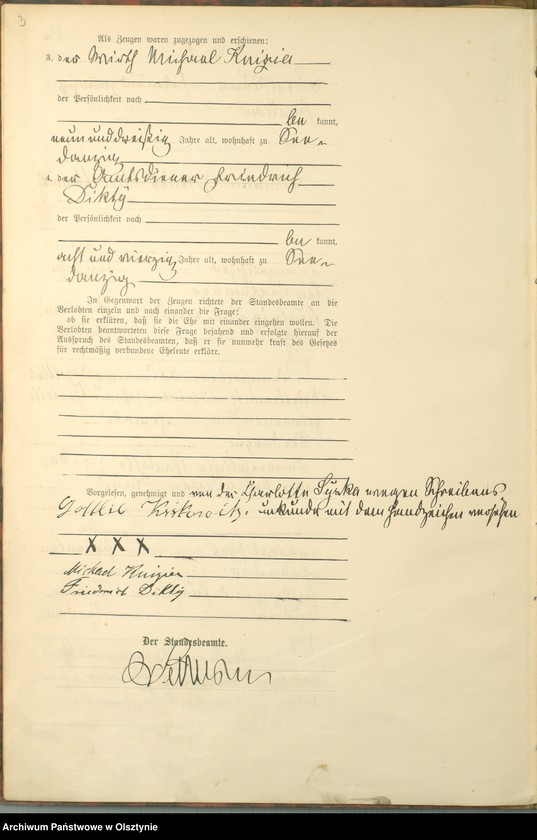 3
Als Zeugen waren zugezogen und erschienen:
3. der Wirth Michael Knizia
der Persönlichkeit nach
be kannt,
neun und dreißig Jahre alt, wohnhaft zu See-
danzig
4. der Amtsdiener Friedrich
Dikty
der Persönlichkeit nach
be kannt,
acht und vierzig Jahre alt, wohnhaft zu See-
danzig
In Gegenwart der Zeugen richtete der Standesbeamte an die
Verlobten einzeln und nach einander die Frage:
ob sie erklären, daß sie die Ehe mit einander eingehen wollen. Die
Verlobten beantworteten diese Frage bejahend und erfolgte hierauf der
Ausspruch des Standesbeamten, daß er sie nunmehr kraft des Gesetzes
für rechtmäßig verbundene Eheleute erkläre.
Vorgelesen, genehmigt und von der Charlotte wegen Schreibens
Gottlieb unkunde mit dem Handzeichen versehen
X X X
Michael Knizia
Friedrich Dikty
Der Standesbeamte.
Archiwum Państwowe w Olsztynie